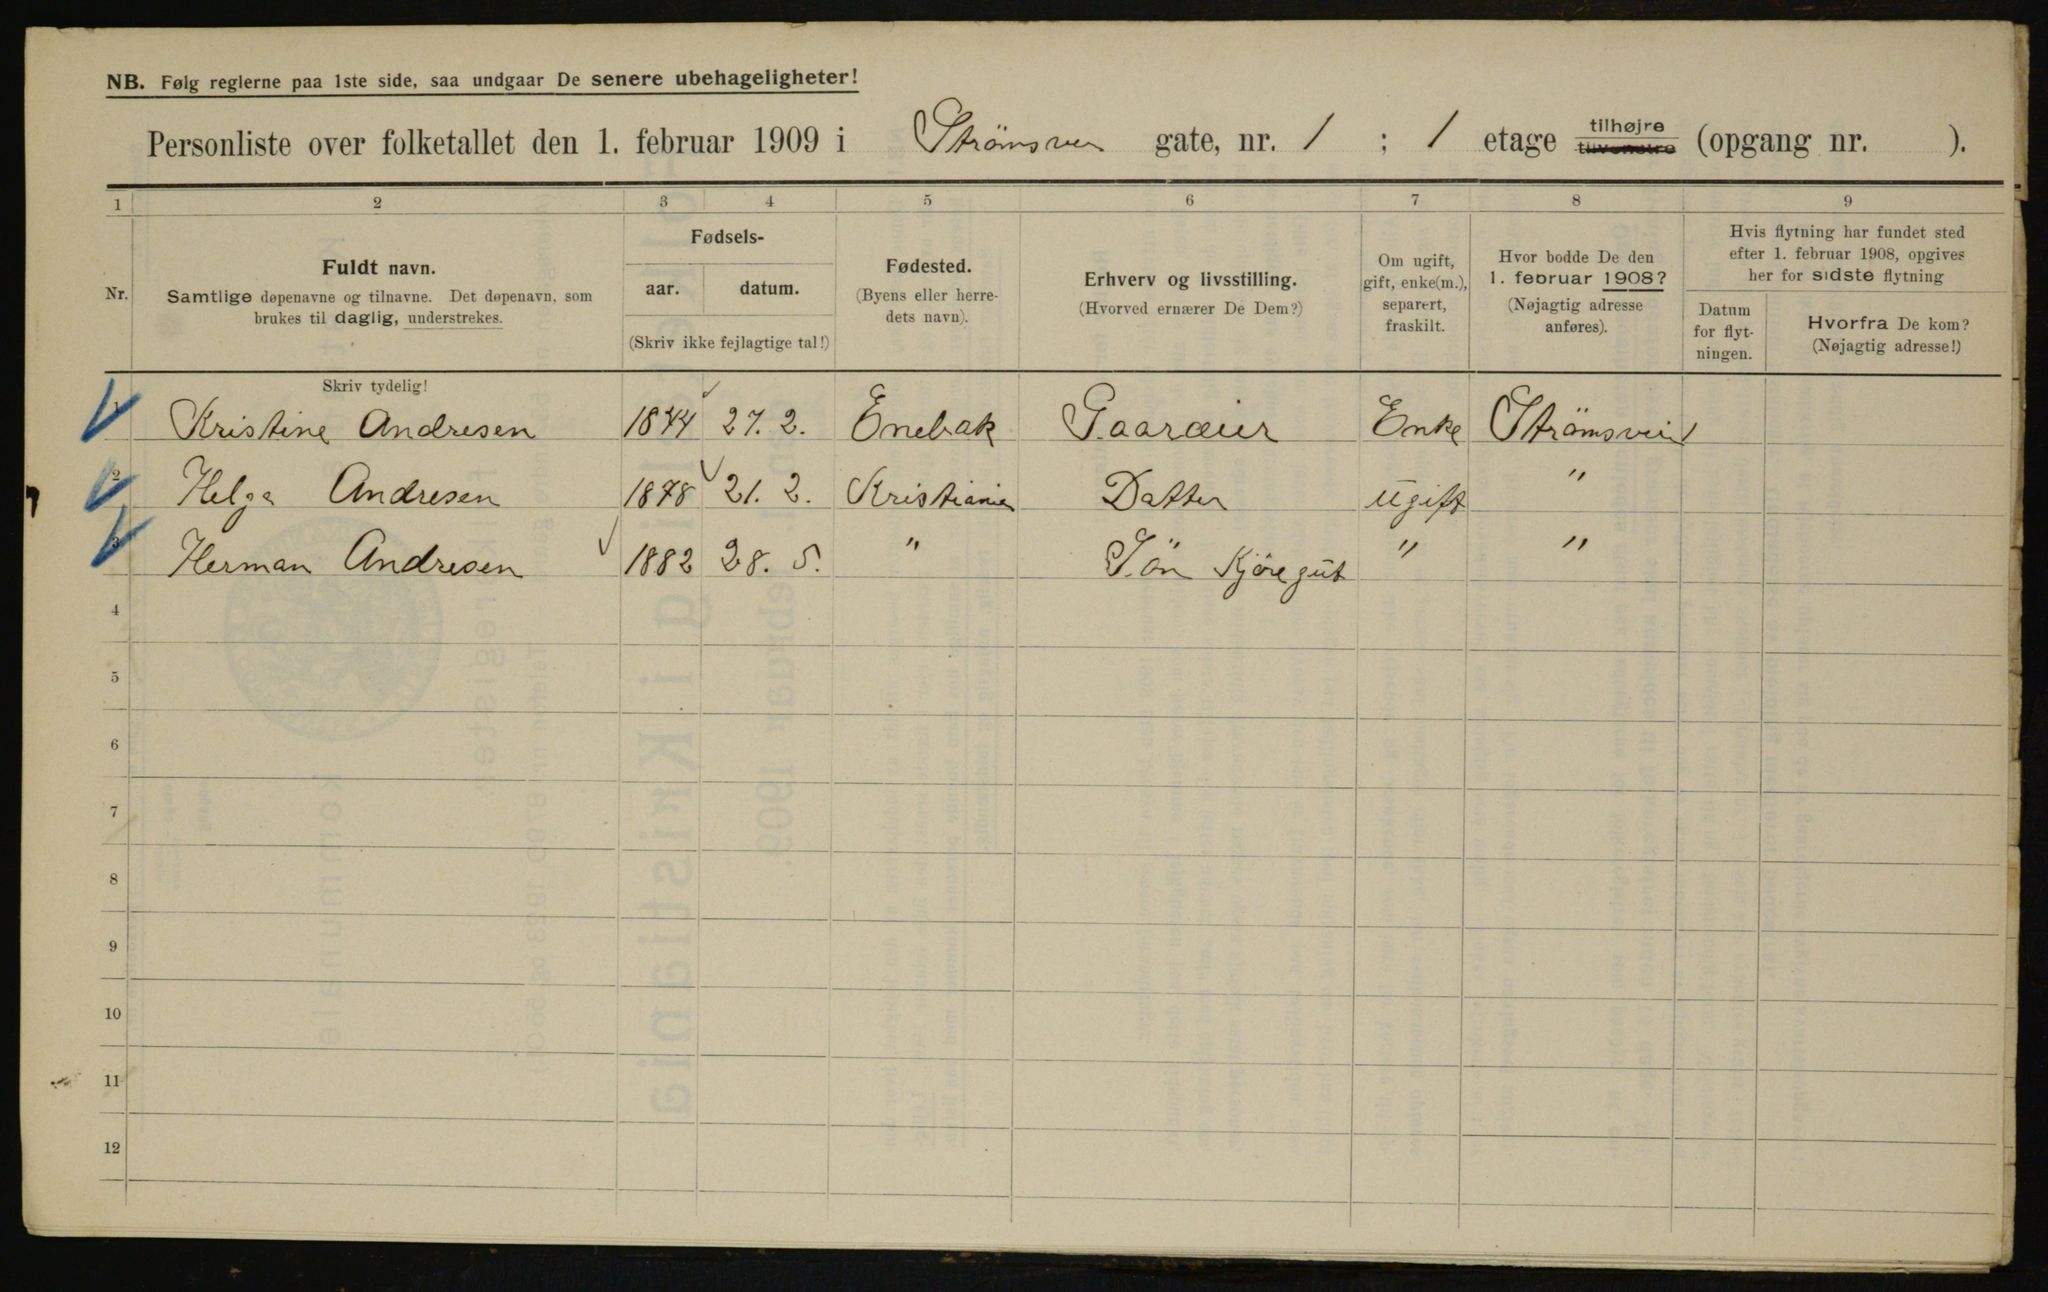 NB. Følg reglerne paa 1ste side, saa undgaar De senere ubehageligheter!
Personliste over folketallet den 1. februar 1909 i Strømsvei gate, nr. 1 ; 1 etage tilhøjre tilvenstre (opgang nr. ).
1 2 3 4 5 6 7 8 9
Nr.
Fuldt navn.
Samtlige døpenavne og tilnavne. Det døpenavn, som
brukes til daglig, understrekes.
Fødsels-
aar. datum.
(Skriv ikke fejlagtige tal!)
Fødested.
(Byens eller herre-
dets navn).
Erhverv og livsstilling.
(Hvorved ernærer De Dem?)
Om ugift,
gift, enke(m.),
separert,
fraskilt.
Hvor bodde De den
1. februar 1908?
(Nøjagtig adresse
anføres).
Hvis flytning har fundet sted
efter 1. februar 1908, opgives
her for sidste flytning
Datum
for flyt-
ningen.
Hvorfra De kom?
(Nøjagtig adresse!)
Skriv tydelig!
1 Kristine Andresen 1844 27. 2. Enebak Gaardeier Enke Strömsvei 1
2 Helga Andresen 1878 21. 2. Kristiania Datter ugift "
3 Herman Andresen 1882 28. 5. " Sön Kjöregut " "
4
5
6
7
8
9
10
11
12